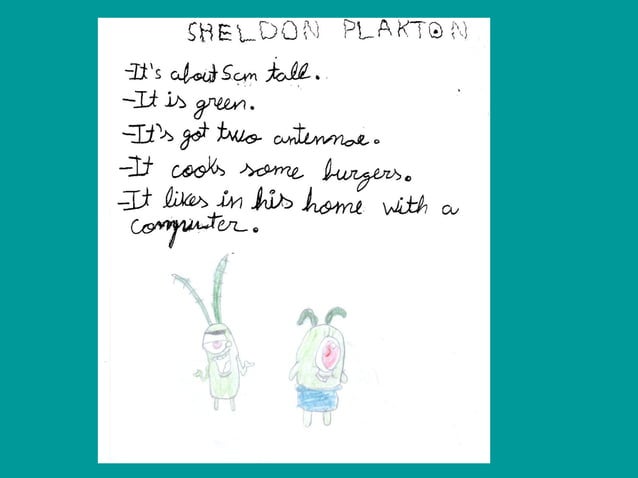 SHELDON PLAKTON
-It's about 5cm tall.
-It is green.
-It's got two antennae.
-It cooks some burgers.
-It likes in his home with a
computer.